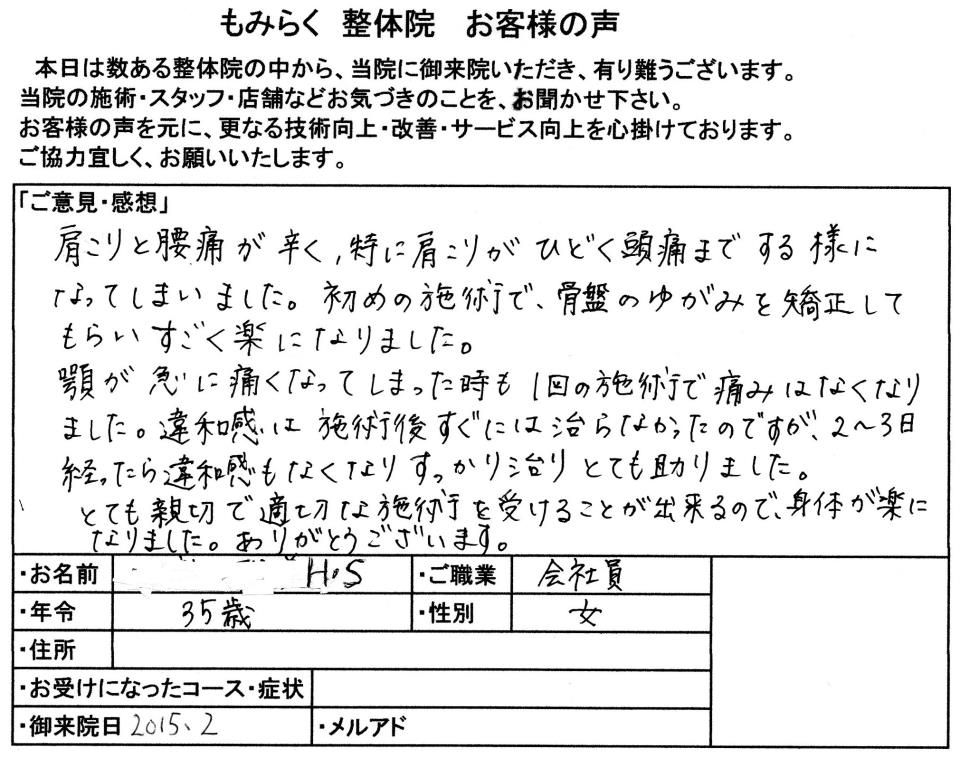 もみらく 整体院 お客様の声
本日は数ある整体院の中から、当院に御来院いただき、有り難うございます。
当院の施術・スタッフ・店舗などお気づきのことを、お聞かせ下さい。
お客様の声を元に、更なる技術向上・改善・サービス向上を心掛けております。
ご協力宜しく、お願いいたします。
「ご意見・感想」
肩こりと腰痛が辛く,特に肩こりがひどく頭痛までする様に
なってしまいました。初めの施術で、骨盤のゆがみを矯正して
もらいすごく楽になりました。
顎が急に痛くなってしまった時も1回の施術で痛みはなくなり
ました。違和感は施術後すぐには治らなかったのですが、2〜3日
経ったら違和感もなくなりすっかり治りとても助りました。
とても親切で適切な施術を受けることが出来るので、身体が楽に
なりました。ありがとうございます。
・お名前 H.S ・ご職業 会社員
・年令 35歳 ・性別 女
・住所
・お受けになったコース・症状
・御来院日 2015、2 ・メルアド